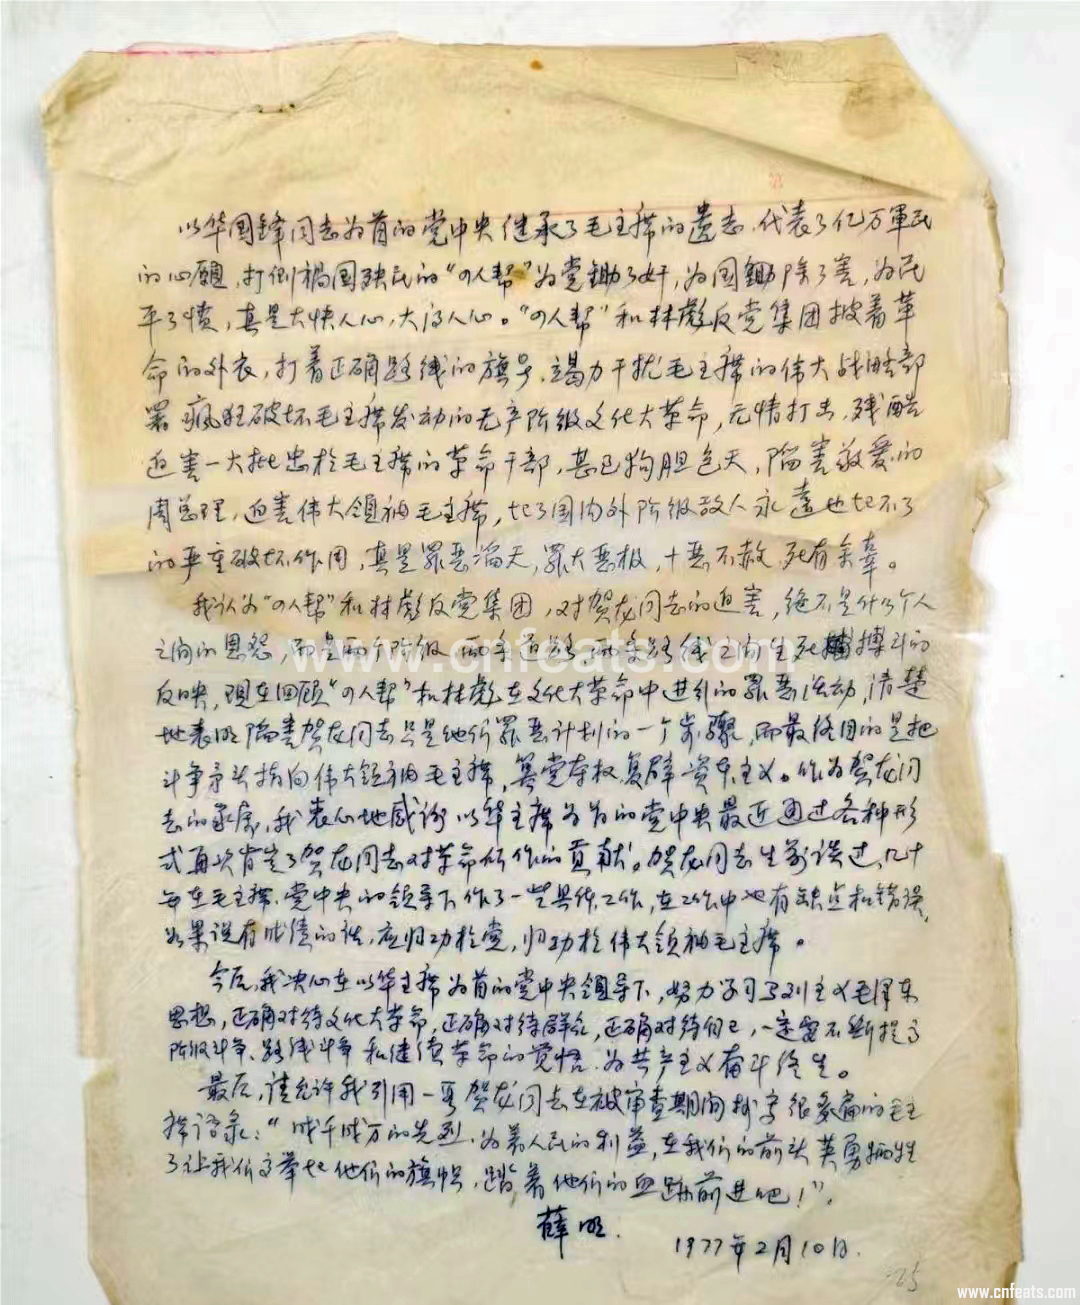 以华国锋同志为首的党中央继承了毛主席的遗志,代表了亿万軍民
的心願,打倒禍国殃民的“四人帮”为党鋤了奸,为国鋤除了害,为民
平了愤,真是大快人心,大得人心。“四人帮”和林彪反党集团披着革
命的外衣,打着正确路线的旗号,竭力干扰毛主席的伟大战略部
署,瘋狂破坏毛主席发动的无产阶级文化大革命,无情打击,残酷
迫害一大批忠於毛主席的革命干部,甚已狗胆包天,陷害敬爱的
周总理,迫害伟大领袖毛主席,起了国内外阶级敌人永遠也起不了
的严重破坏作用,真是罪恶滔天,罪大恶极,十恶不赦,死有余辜。
我认为“四人帮”和林彪反党集团,对贺龙同志的迫害,绝不是什么个人
之间的恩怨,而是两个阶级 两条道路 两条路线之间生死搏斗的
反映,現在回顾“四人帮”和林彪在文化大革命中进行的罪恶活动,清楚
地表明陷害贺龙同志只是他们罪恶计划的一个步驟,而最终目的是把
斗争矛头指向伟大领袖毛主席,篡党夺权,复辟资本主义。作为贺龙同
志的家属,我衷心地感谢以华主席为首的党中央最近通过各种形
式再次肯定了贺龙同志对革命所作的贡献。贺龙同志生前谈过,几十
年在毛主席、党中央的领导下作了一些具体工作,在工作中也有缺点和错误,
如果说有成绩的话,应归功於党,归功於伟大领袖毛主席。
今后,我决心在以华主席为首的党中央领导下,努力学习马列主义毛泽东
思想,正确对待文化大革命,正确对待群众,正确对待自己,一定要不断提高
阶级斗争、路线斗争和继续革命的觉悟,为共产主义奋斗终生。
最后,请允许我引用一段贺龙同志在被审查期间抄写很多遍的毛主
席语录:“成千成万的先烈,为着人民的利益,在我们的前头英勇牺牲
了让我们高举起他们的旗帜,踏着他们的血跡前进吧!”。
薛明.
1977年2月10日.
25
www.cnfeats.com
www.cnfeats.com